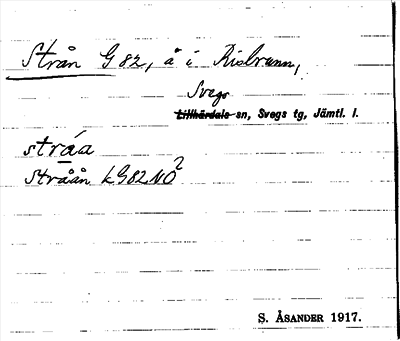 Strån G 82, å i Risbrunn,
Svegs
Lillhärdals sn, Svegs tg, Jämtl. l.
stráa
Stråån kG82NÖ²
S. ÅSANDER 1917.